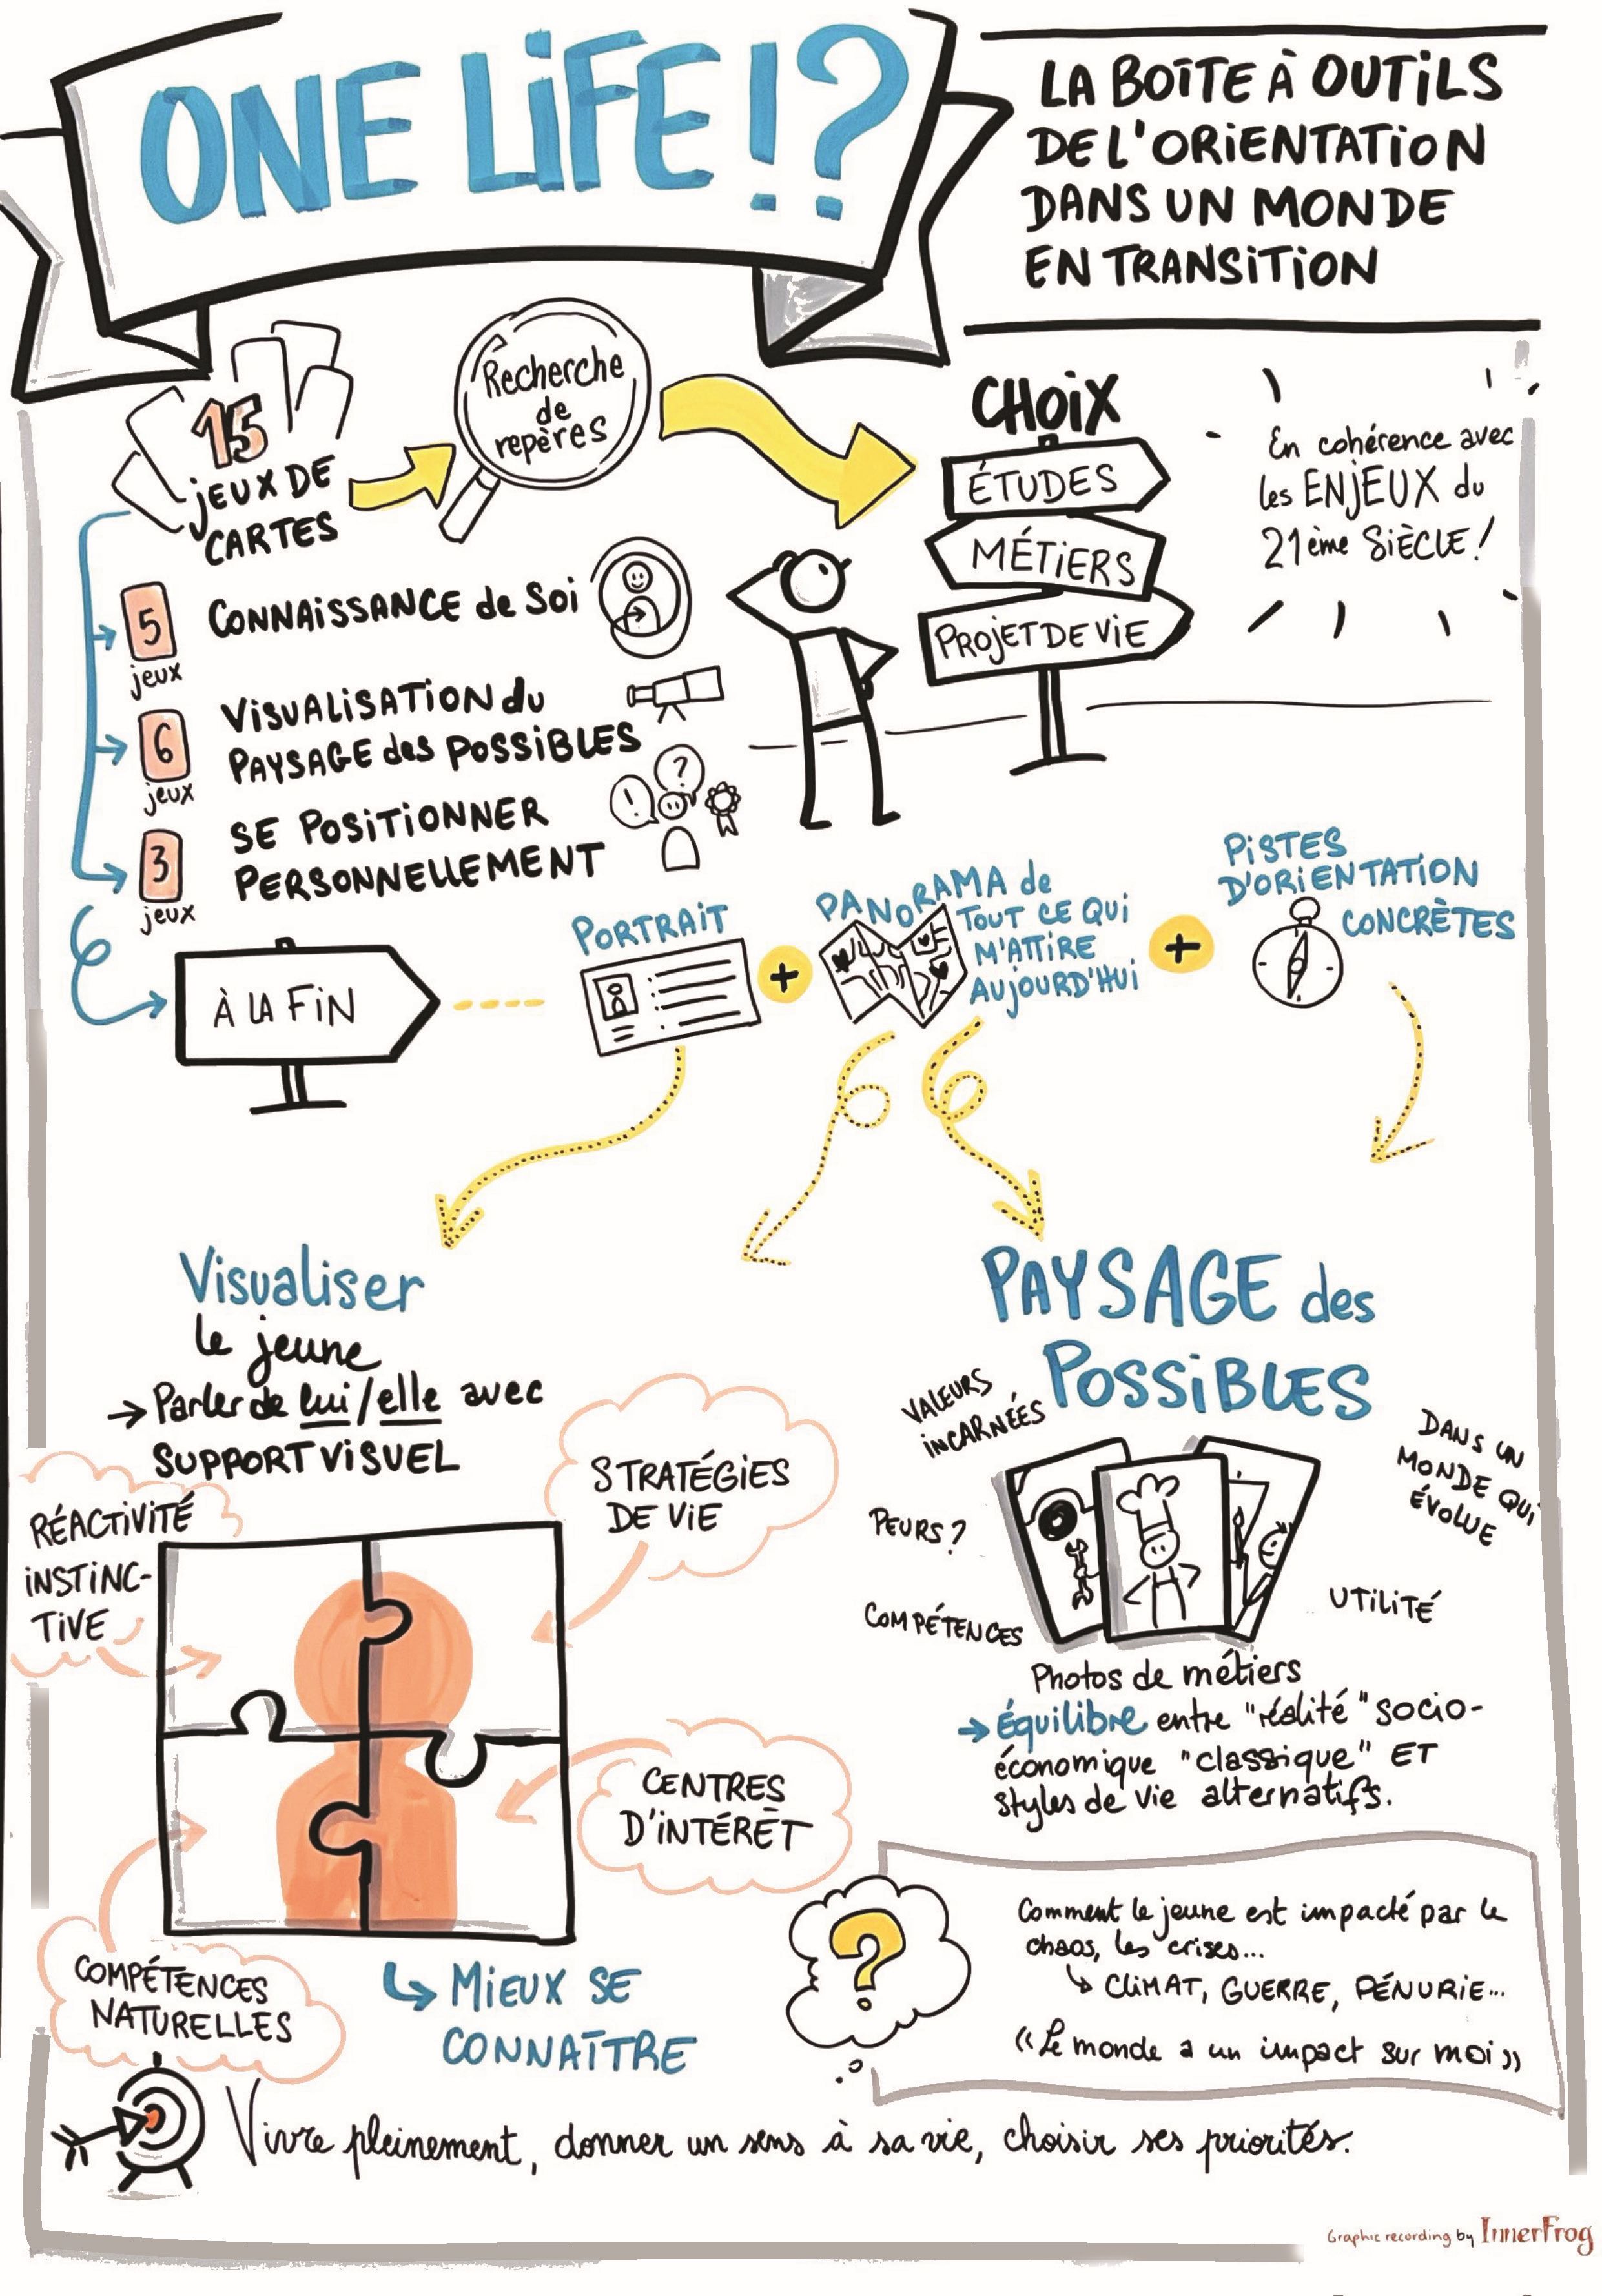 ONE LiFE!?
LA BOÎTE À OUTiLS
DE L'ORiENTATiON
DANS UN MONDE
EN TRANSiTiON
15
JEUX DE
CARTES
Recherche
de
repères
CHOiX
ÉTUDES
MÉTiERS
PROJET DE ViE
En cohérence avec
les ENJEUX du
21ème SiÈCLE!
5
jeux
CONNAiSSANCE de Soi
6
jeux
ViSUALiSATiON du
PAYSAGE des POSSiBLES
3
jeux
SE POSiTiONNER
PERSONNELLEMENT
!
?
À LA FiN
PORTRAiT
+
PANORAMA de
TOUT CE QUi
M'ATTiRE
AUJOURD'HUi
+
PiSTES
D'ORiENTATiON
CONCRÈTES
Visualiser
le jeune
→ Parler de lui/elle avec
SUPPORT ViSUEL
RÉACTiViTÉ
iNSTiNC-
TiVE
STRATÉGiES
DE ViE
CENTRES
D'iNTÉRÊT
COMPÉTENCES
NATURELLES
↳ MiEUX SE
CONNAÎTRE
PAYSAGE des
POSSiBLES
VALEURS
iNCARNÉES
PEURS?
COMPÉTENCES
DANS UN
MONDE QUi
ÉVOLUE
UTiLiTÉ
Photos de métiers
→ Équilibre entre "réalité" socio-
économique "classique" ET
styles de vie alternatifs.
?
Comment le jeune est impacté par le
chaos, les crises...
↳ CLiMAT, GUERRE, PÉNURiE...
«Le monde a un impact sur moi»
Vivre pleinement, donner un sens à sa vie, choisir ses priorités.
Graphic recording by InnerFrog